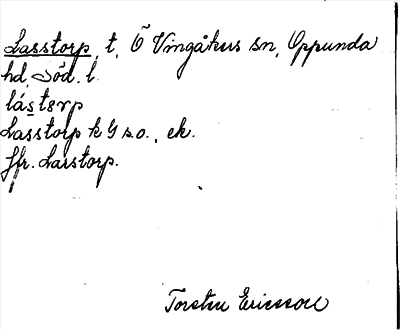 Lasstorp, t, Ö Vingåkus sn, Oppunda
hd, Söd. l.
lástorp
Lasstorp k G s.o., ek.
Jfr. Larstorp.
Torsten Ericsson